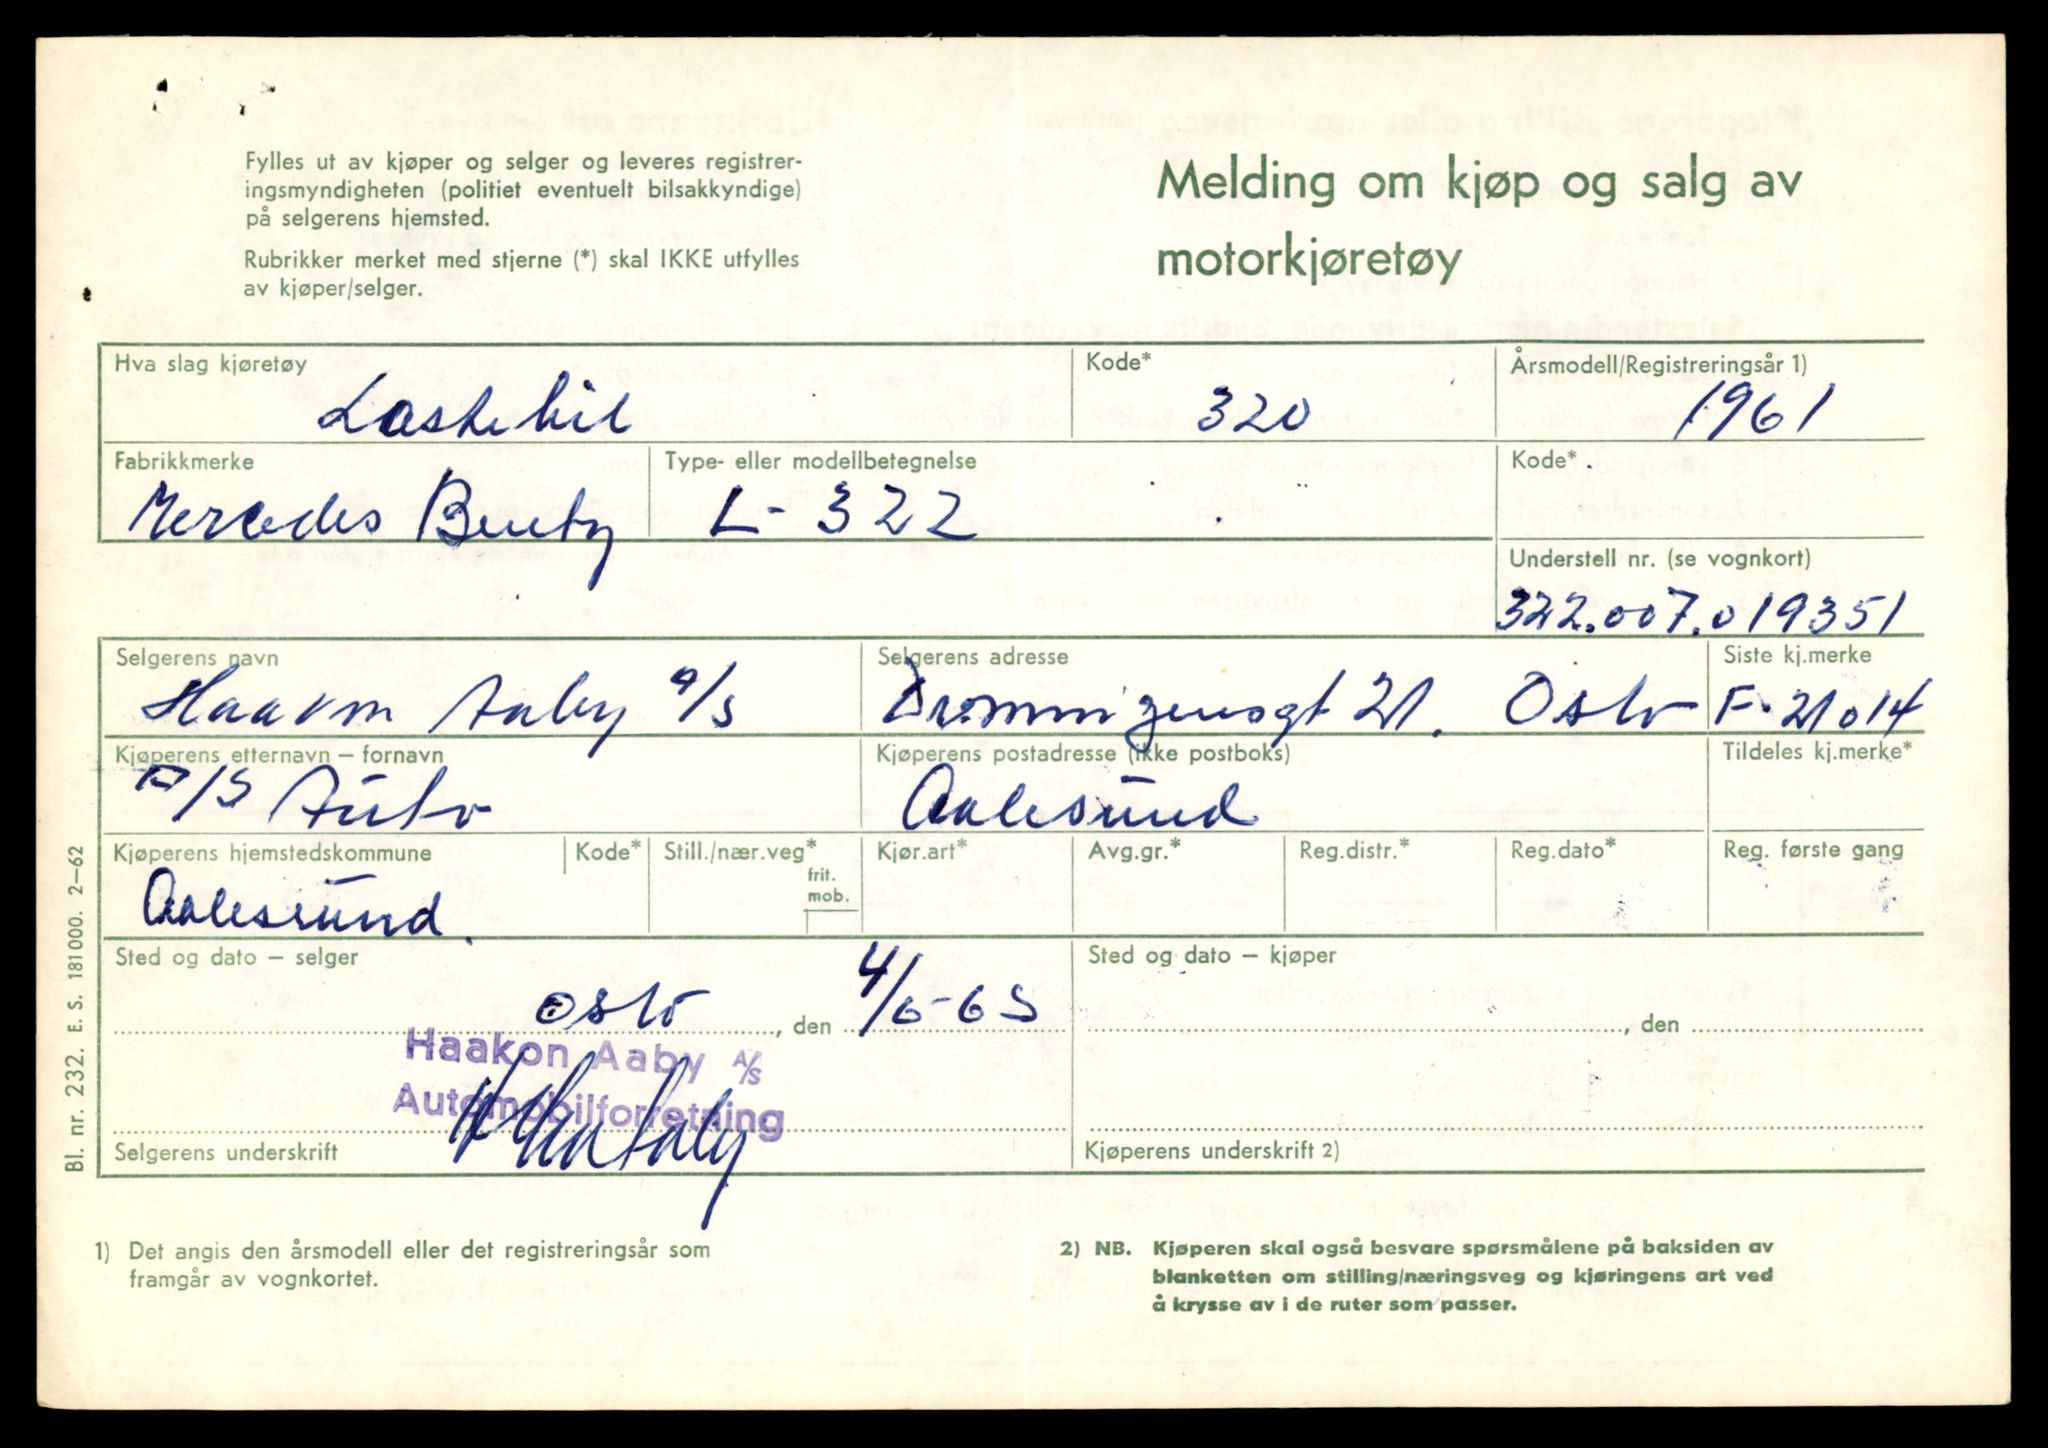 Fylles ut av kjøper og selger og leveres registrer-
ingsmyndigheten (politiet eventuelt bilsakkyndige)
på selgerens hjemsted.
Rubrikker merket med stjerne (*) skal IKKE utfylles
av kjøper/selger.
Melding om kjøp og salg av
motorkjøretøy
Hva slag kjøretøy
Lastebil
Kode*
320
Årsmodell/Registreringsår 1)
1961
Fabrikkmerke
Mercedes Bentz
Type- eller modellbetegnelse
L- 322
Kode*
Understell nr. (se vognkort)
322.007.019351
Selgerens navn
Haakon Aaby A/S
Selgerens adresse
Dronningensgt 21. Oslo
Siste kj.merke
F-21014
Kjøperens etternavn – fornavn
A/S Auto
Kjøperens postadresse (ikke postboks)
Aalesund
Tildeles kj.merke*
Kjøperens hjemstedskommune
Aalesund.
Kode*
Still./nær.veg*
frit.
mob.
Kjør.art*
Avg.gr.*
Reg.distr.*
Reg.dato*
Reg. første gang
Sted og dato – selger
Oslo, den 4/6-65
Haakon Aaby A/S
Automobilforretning
Selgerens underskrift
Sted og dato – kjøper
, den
Kjøperens underskrift 2)
1) Det angis den årsmodell eller det registreringsår som
framgår av vognkortet.
2) NB. Kjøperen skal også besvare spørsmålene på baksiden av
blanketten om stilling/næringsveg og kjøringens art ved
å krysse av i de ruter som passer.
Bl. nr. 232. E. S. 181000. 2–62